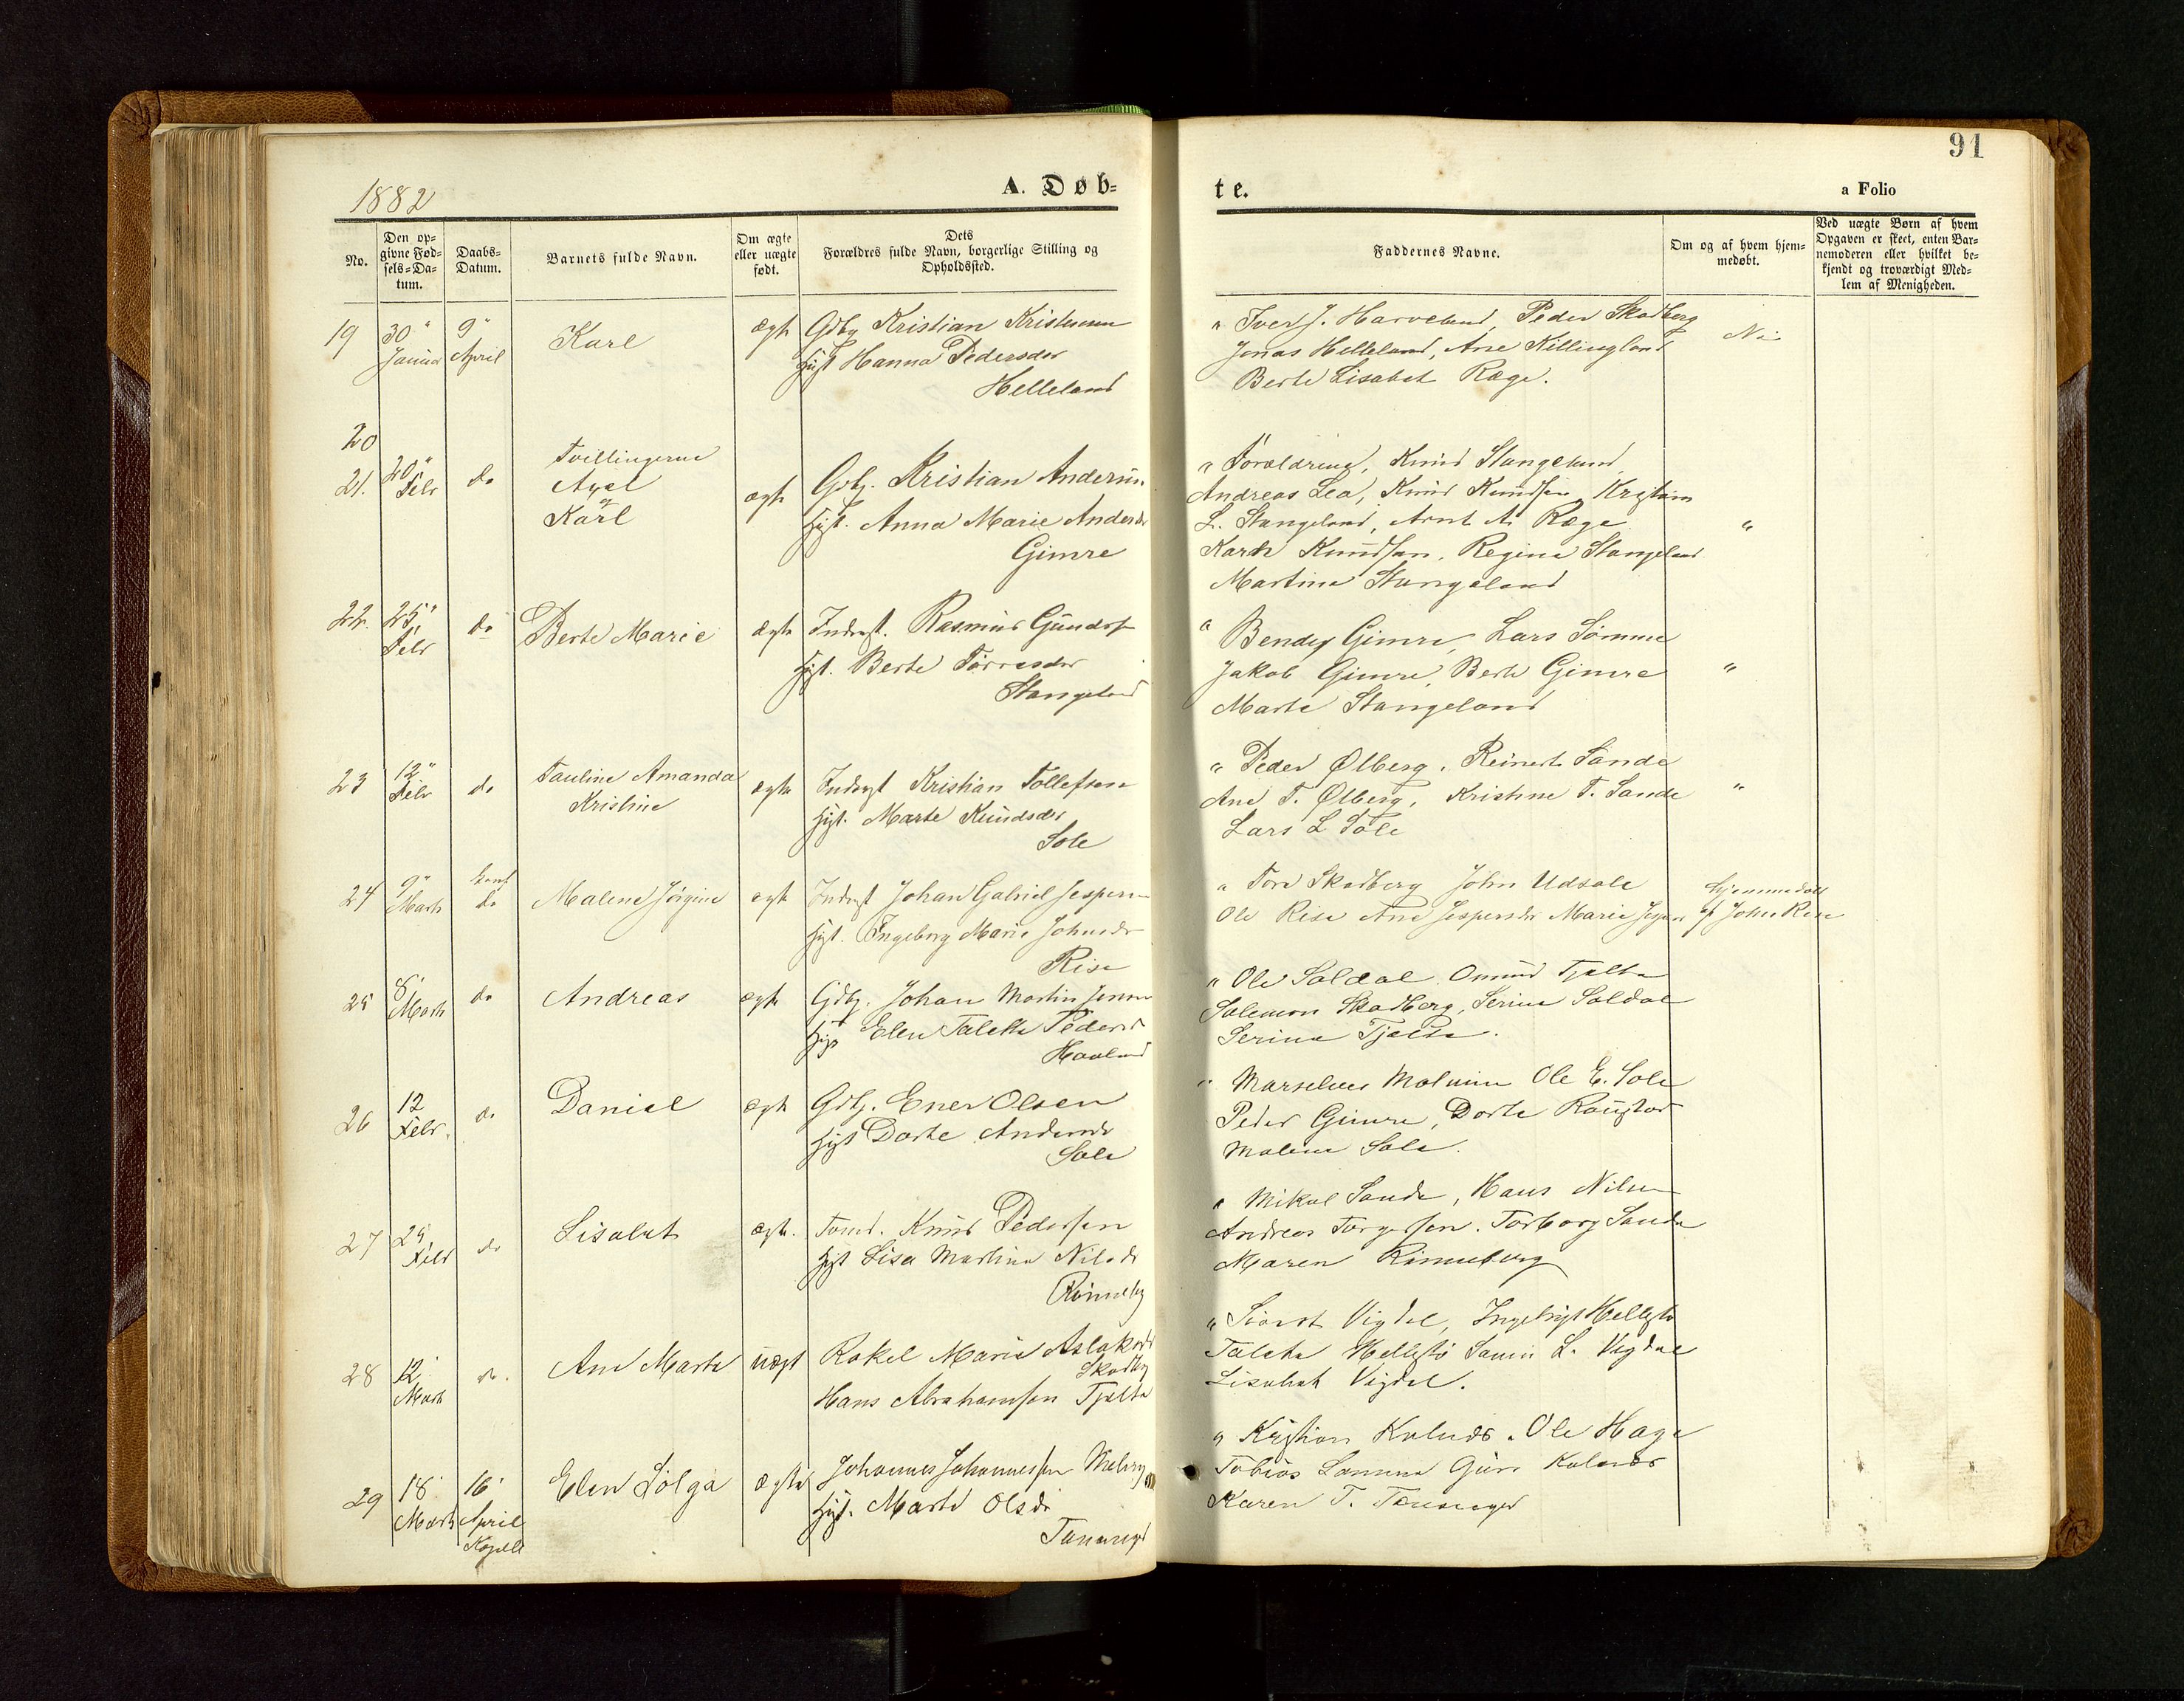 91
1882
A. Døb=
te.
a Folio
No.
Den op=
givne Fød=
sels=Da=
tum.
Daabs=
Datum.
Barnets fulde Navn.
Om ægte
eller uægte
født.
Dets
Forældres fulde Navn, borgerlige Stilling og
Opholdssted.
Faddernes Navne.
Om og af hvem hjem=
medøbt.
Ved uægte Børn af hvem
Opgaven er skeet, enten Bar=
nemoderen eller hvilket be=
kjendt og troværdigt Med=
lem af Menigheden.
19 30" Januar 9" April Karl ægte Gdbg Kristian
Hanna Pedersdr
Helleland
" Iver J. Harveland, Peder Skadberg
Jonas Helleland, Ane Killingland
Berte Lisabet Ræge.
Nei
20
21. 20" Febr do Tvillingerne
Axel
og
Karl
ægte Gdbg. Kristian Andersen
Anna Marie Andersdr
Gimre
" Forældrene, Knud Stangeland
Andreas Lea, Knud Knudsen, Kristian
L. Stangeland, Arnt A. Ræge
Karen Knudsen, Regine Stangeland
Martine Stangeland
"
22. 25" Febr do Berte Marie ægte Inderst. Rasmus Gunders
Berte Tørresdr
Stangeland
" Gimre, Lars Sømme
Jakob Gimre, Berte Gimre
Marte Stangeland
"
23 12" Febr do Pauline Amanda
Kristine
ægte Inderst Kristian Tollefsen
Marte Knudsdr
Sole
" Peder Ølberg, Reinert Sande
Ane T. Ølberg, Kristine T. Sande
Lars L Sole
"
24 9" Marts do Malene Jørgine ægte Inderst Johan Gabriel Jespersen
Ingeborg Marie Johnsdr
Rise
" Tore Skadberg John Udsole
Ole Rise Ane Jespersdr Marie
hjemmedøbt
af John Rise
25 8" Marts do Andreas ægte Gdbg. Johan Martin Jensen
Elen Taletta Pedersdr
Haaland
" Ole Soldal Omund Tjelta
Salemon Skadberg, Serine Soldal
Serine Tjelta.
26 12 Febr. do Daniel ægte Gdbg. Ener Olsen
Dorte Andersdr
Sole
" Ole E. Sole
Peder Gimre, Dorte
Malene Sole.
27 Febr do Lisabet ægte. Knud Pedersen
Lisa Martine Nilsdr
" Mikal Sande, Hans Nilsen
Andreas Torgersen. Torborg Sande
Maren Rinneberg
28 12" Marts do. Ane Marta uægt Rakel Marie Aslaksdr
Skadbg
Hans Abrahamsen Tjelta
" Sivert Vigdel, Ingebrigt Hellestø
Taleta Hellestø L. Vigdel
Lisabet Vigdel.
29 18" Marts 16" April
Kapell
Elen Solga ægte Johannes Johannessen
Marte Olsdr
Tananger
" Kristian Kolnes. Ole Haga
Tobias Kolnes
Karen T. Tananger